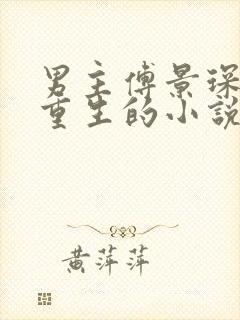 男主傅景琛
重生的小説
黄萍萍